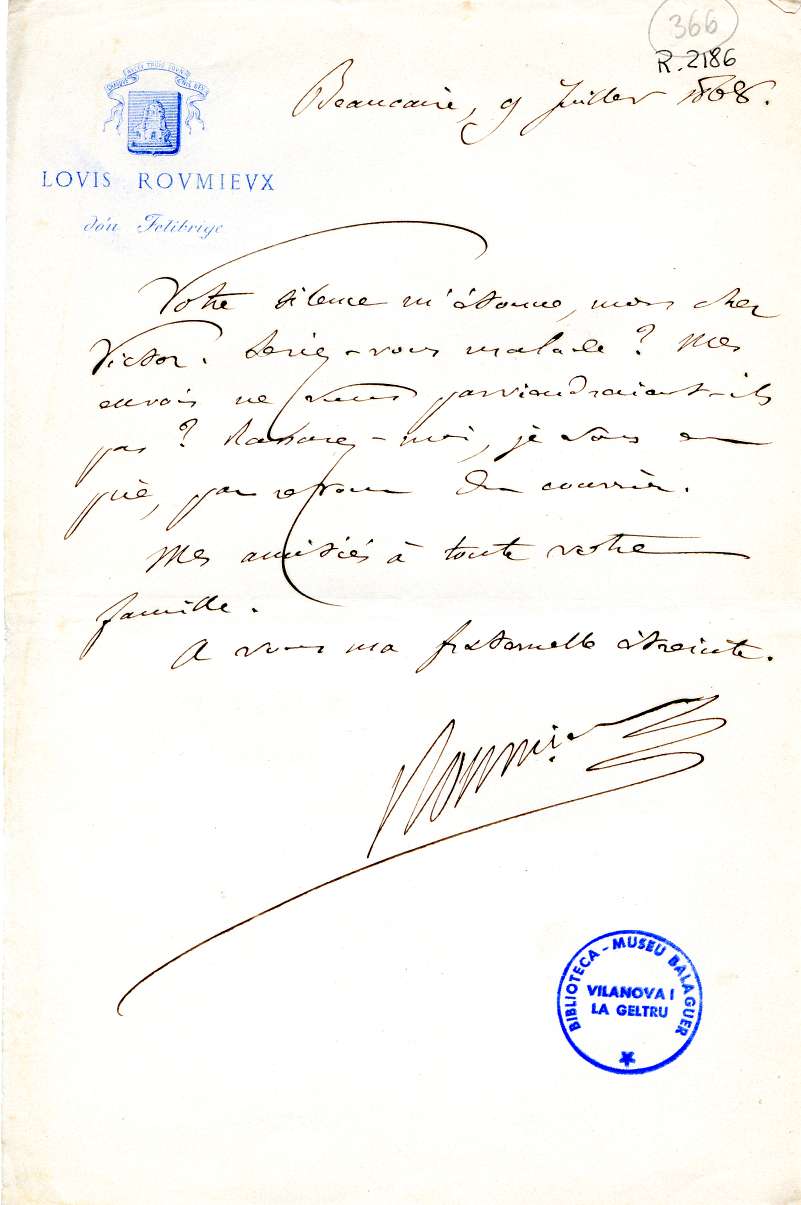 366
R. 2186
Beaucaire, 9 Juillet 1868.
LOVIS ROVMIEVX
dóu Felibrige
Votre silence m'étonne, mon cher
Victor. Seriez-vous malade ? Mes
envois ne vous parviendraient-ils
pas ? Rassurez-moi, je vous en
prie, par retour du courrier.
Mes amitiés à toute votre
famille.
A vous ma fraternelle étreinte.
Roumieux
BIBLIOTECA - MUSEU BALAGUER
VILANOVA I
LA GELTRU